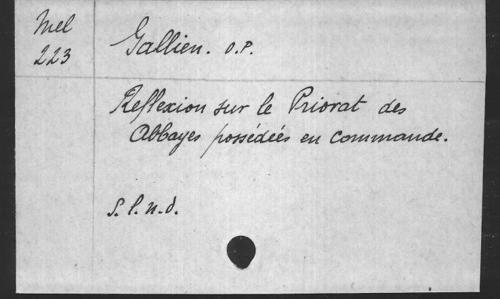 Mel
223
Gallien. O.P.
Reflexion sur le Priorat des
Abbayes possédées en commande.
S.l.n.d.